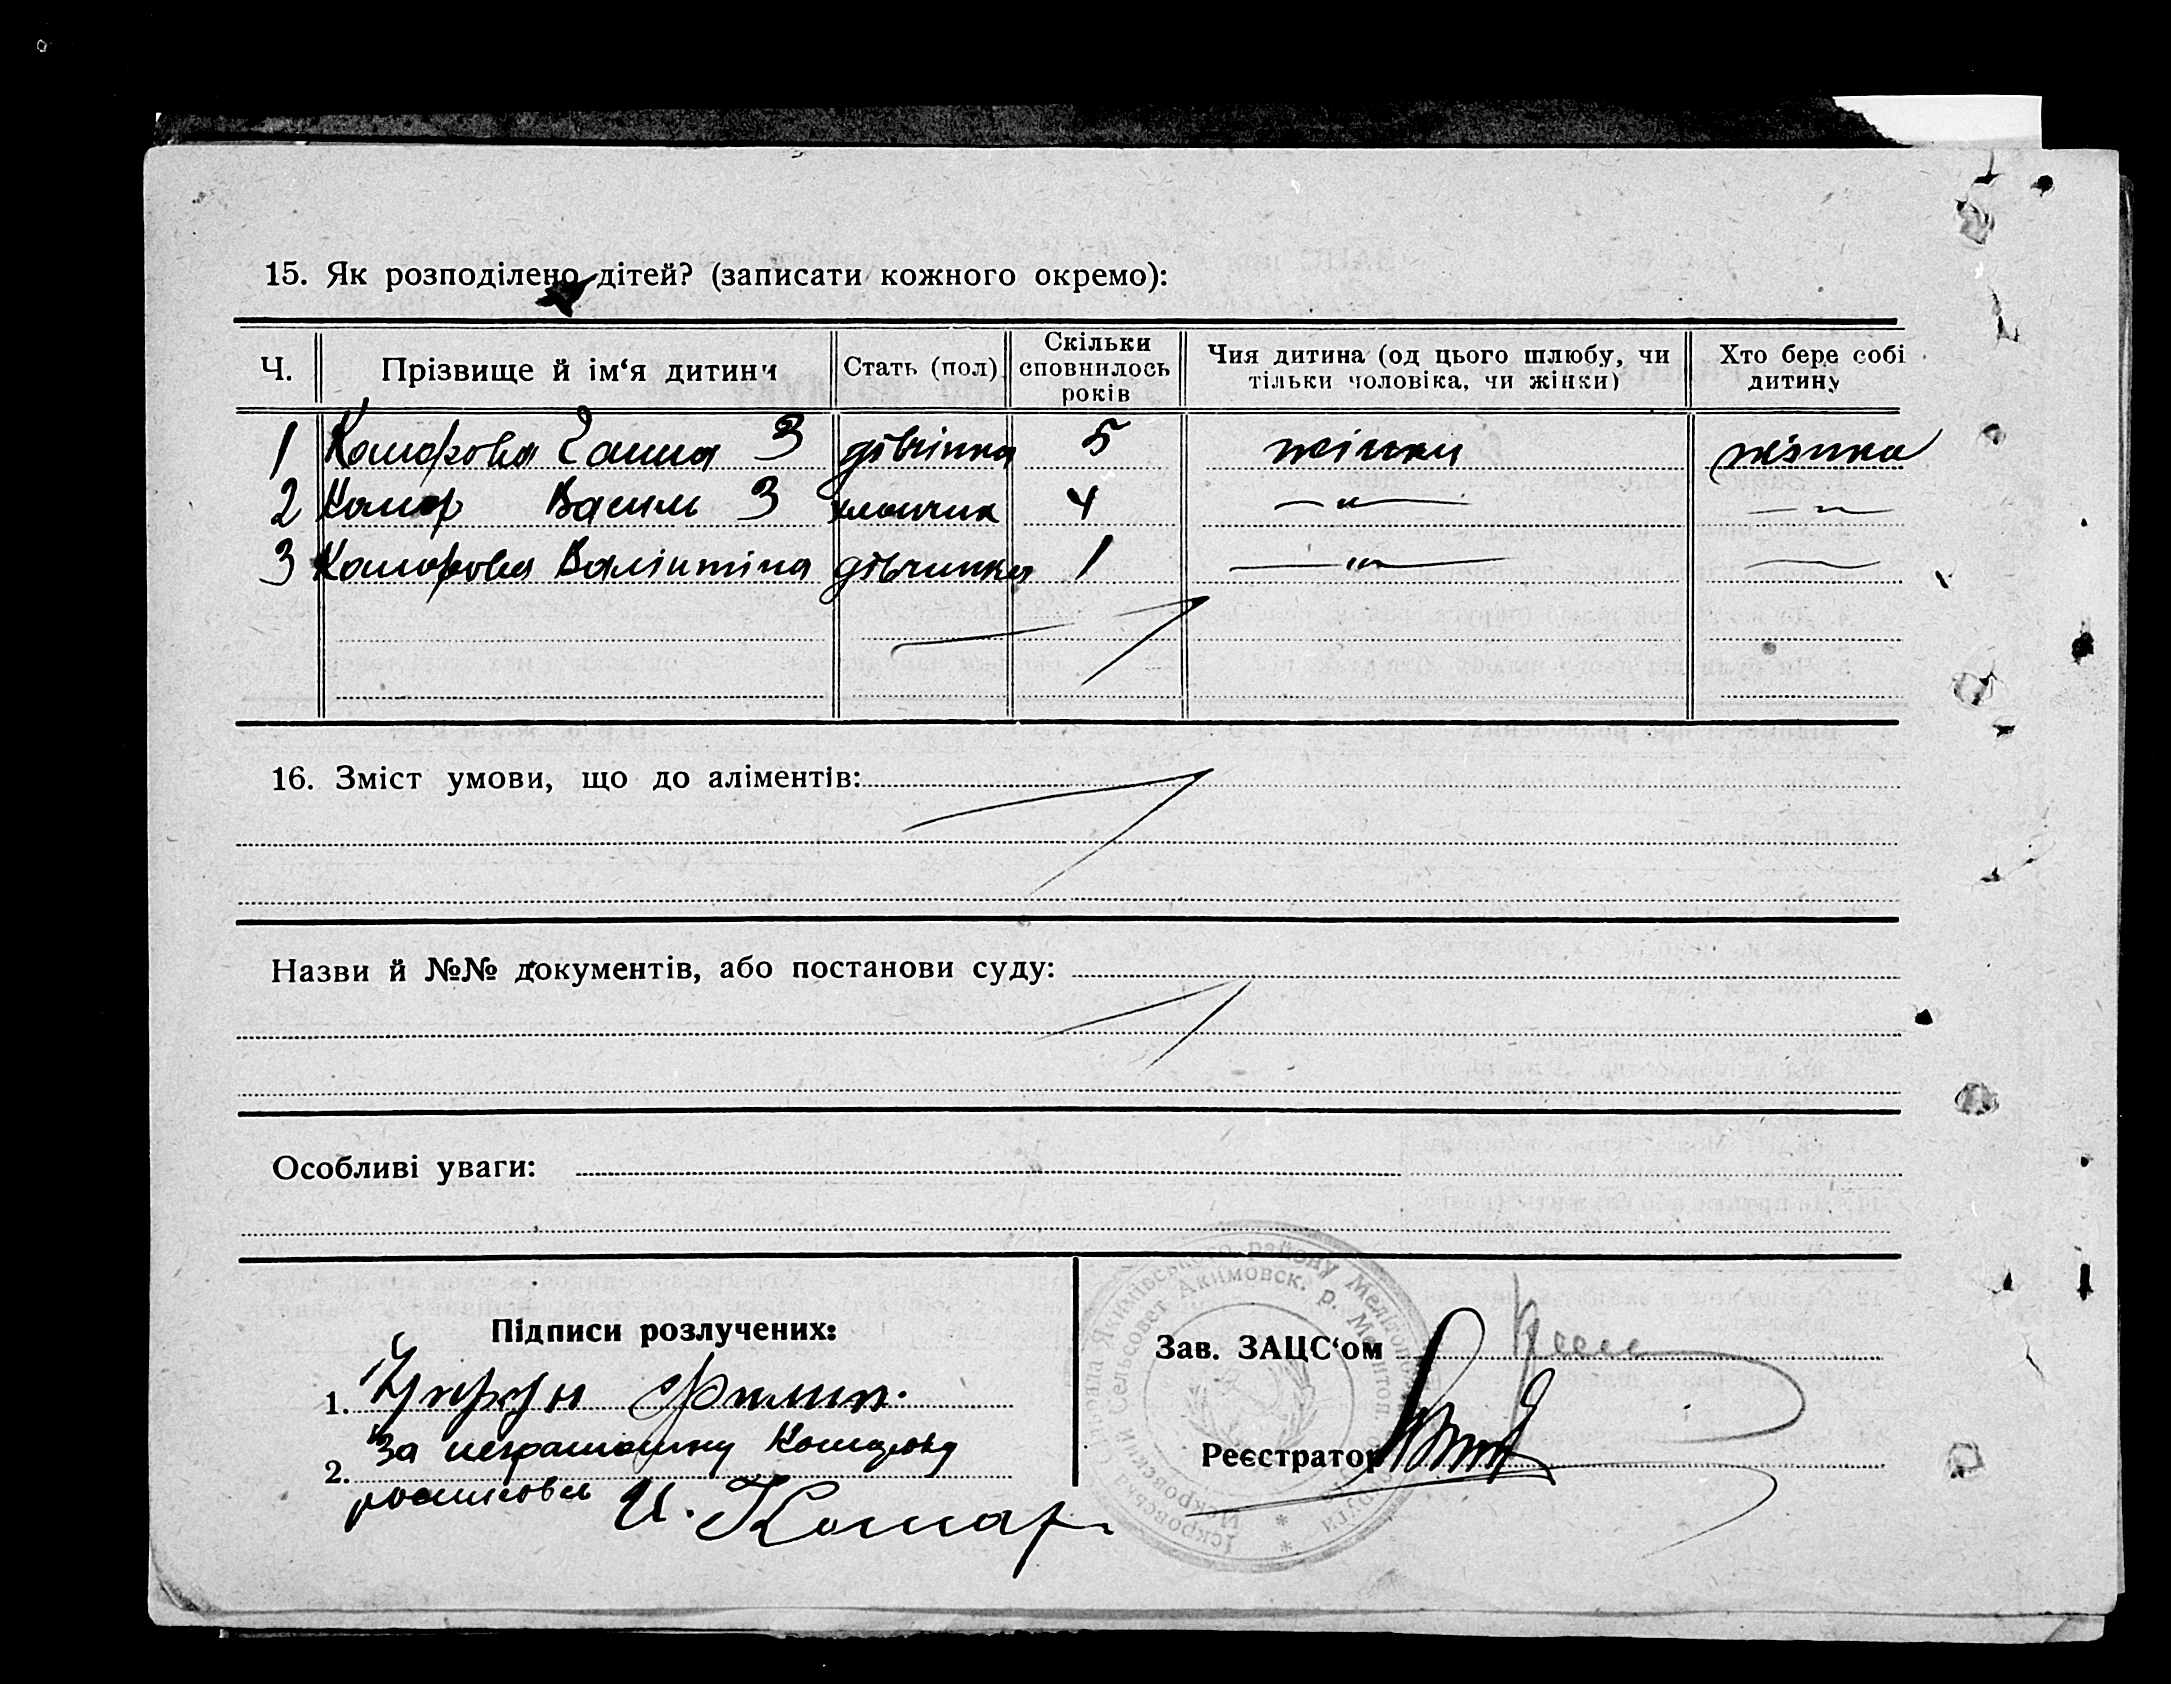 15. Як розподілено дітей? (записати кожного окремо):
Ч. Прізвище й ім‘я дитини Стать (пол) Скільки сповнилось років Чия дитина (од цього шлюбу, чи тільки чоловіка, чи жінки) Хто бере собі дитину
1 Комарова Ганна З дівчінка 5 жінки жінка
2 Комар Василь З хлопчик 4 —〃— —〃—
3 Комарова Валінтіна дівчинка 1 —〃— —
16. Зміст умови, що до аліментів:
Назви й №№ документів, або постанови суду:
Особливі уваги:
Підписи розлучених:
1. Филип
2. За неграмотну
росписовсь И. Комар
Зав. ЗАЦС‘ом
Реєстратор
Якимівського району Мелітопол
Искровский Сельсовет Акимовск. р. Мелитоп. округи